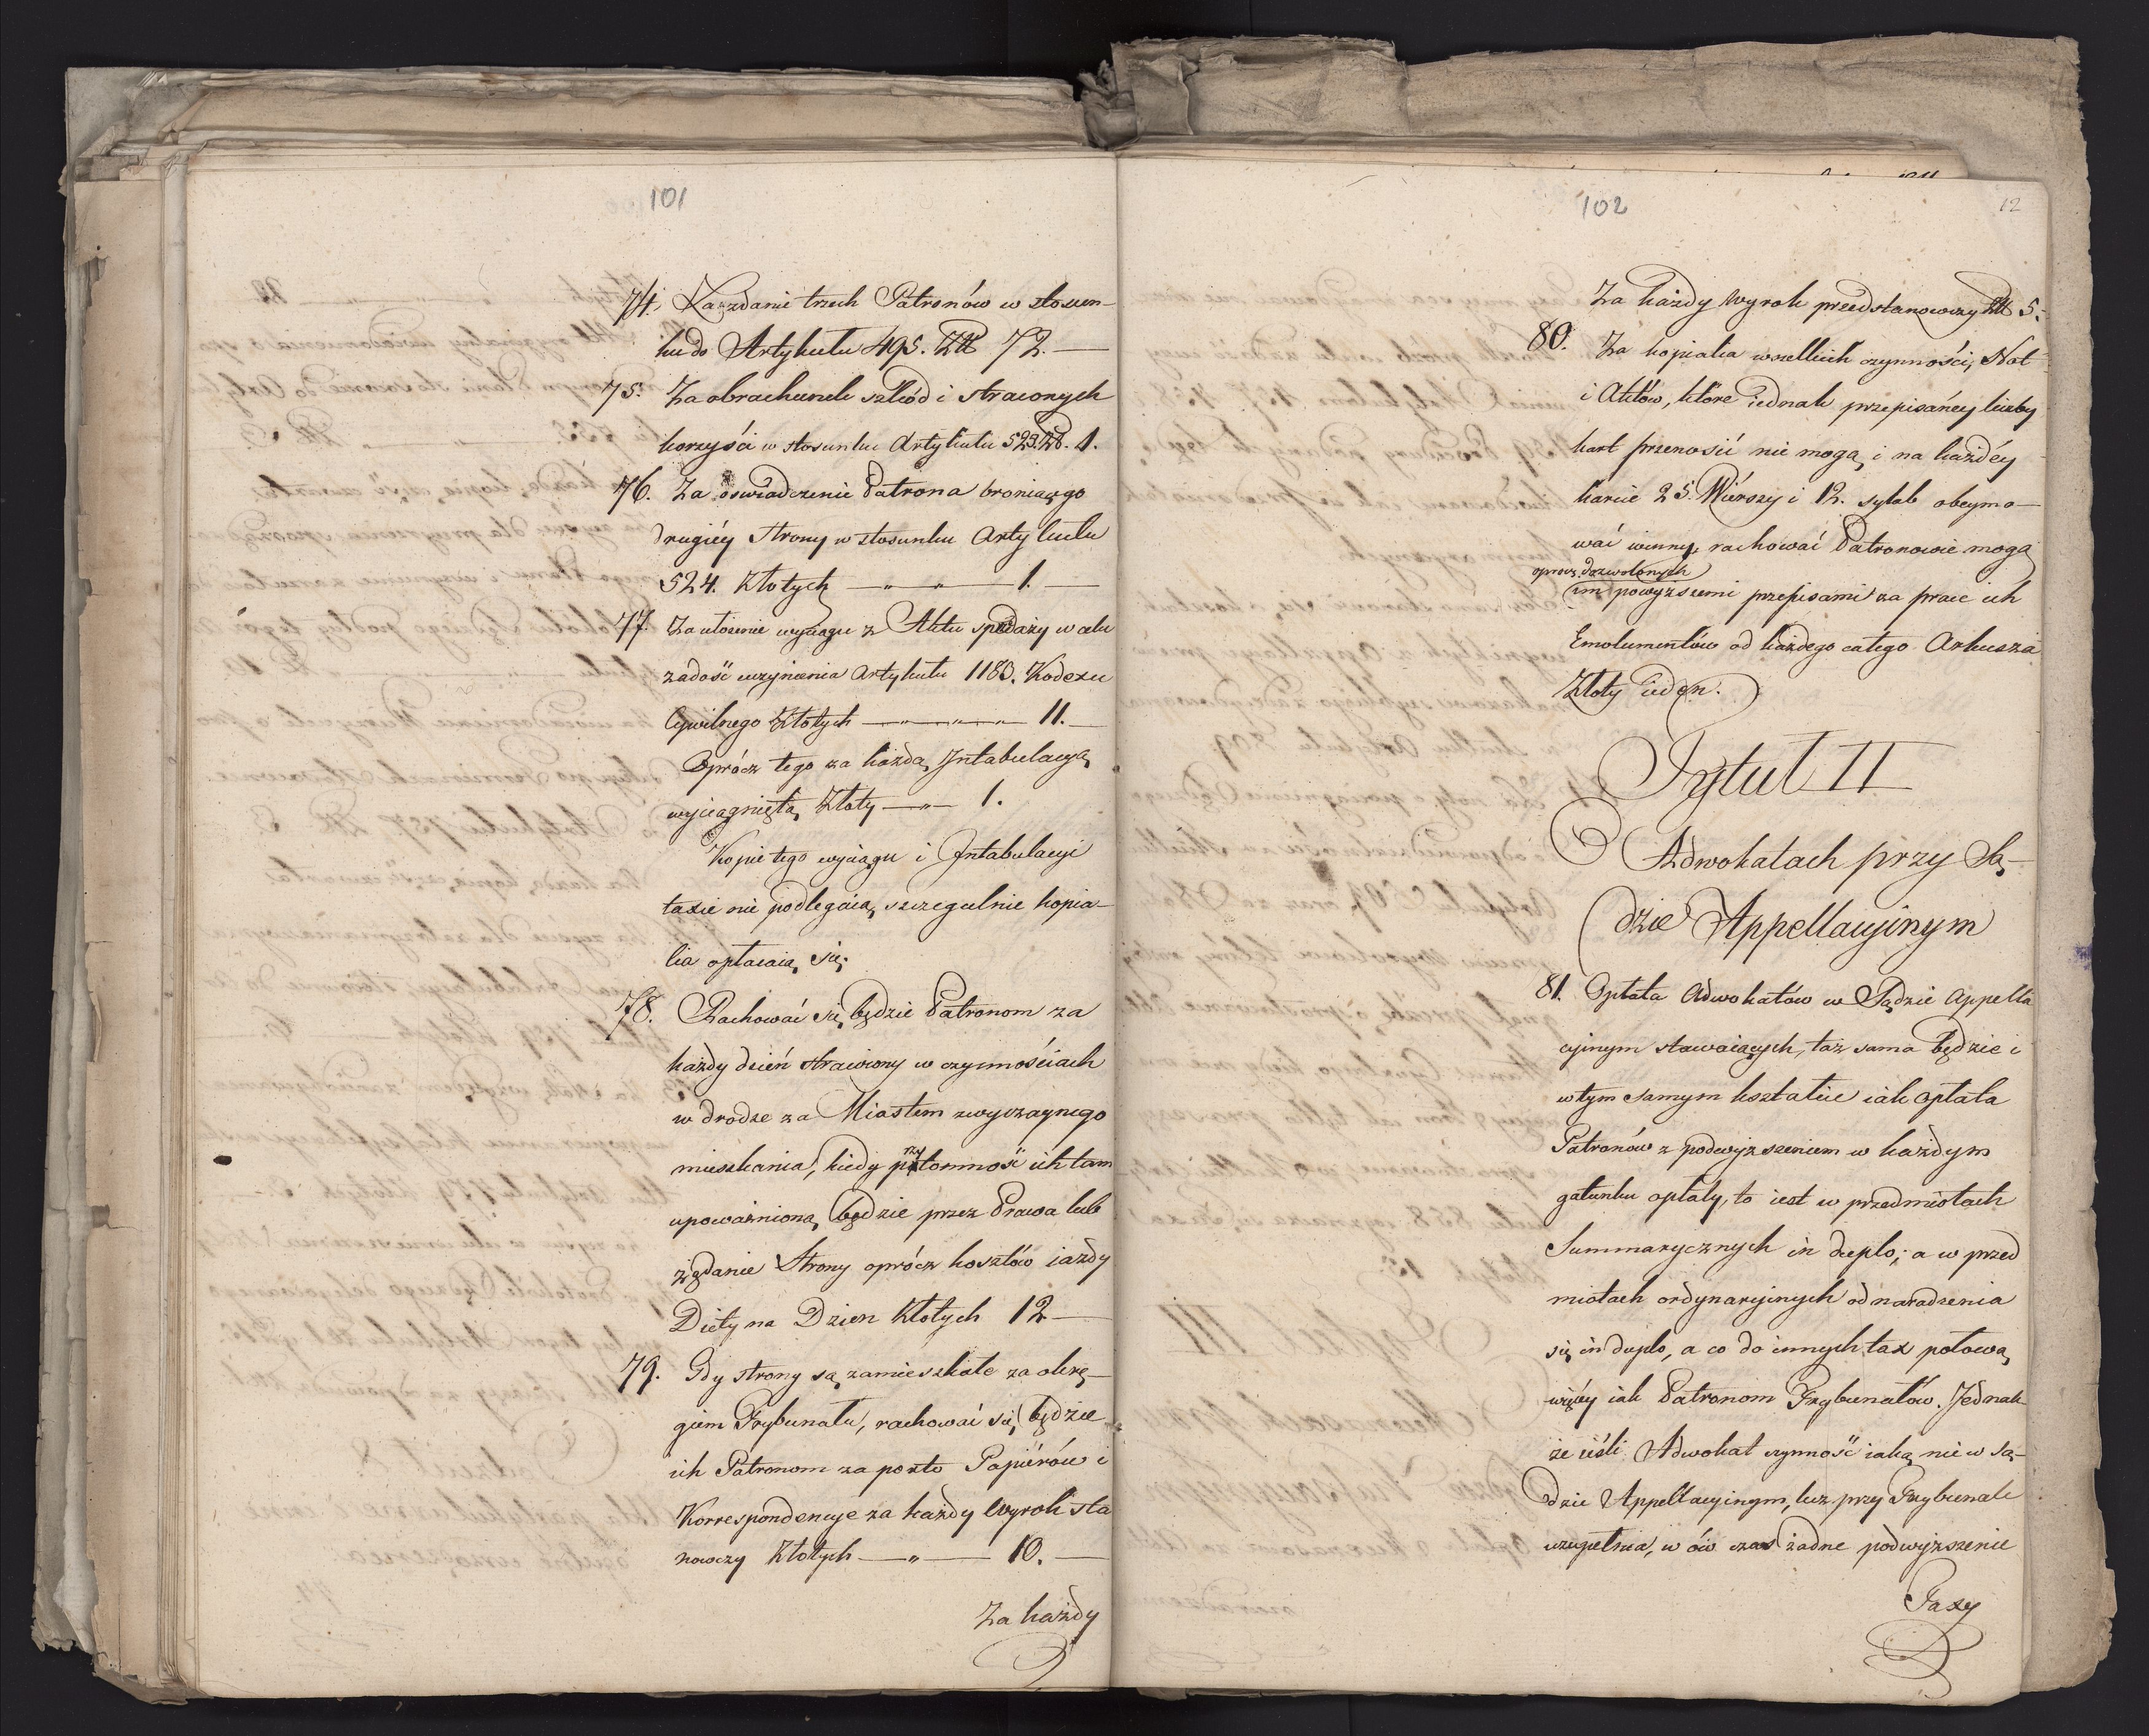 101
74. Za zdanie trzech Patronów w stosun-
ku do Artykułu 495. Złł 72.—
75. Za obrachunek szkód i straconych
korzyści w stosunku Artykułu 523. Zł. 1.
76. Za oświadczenie Patrona broniącgo
drugiéy strony w stosunku Artykułu
524. Złotych — „ — „ — 1.—
77. Za ułożenie wyciągu z Aktu spedaży w celu
zadość uczynienia Artykułu 1183. Kodexu
Cywilnego Złotych — „ — „ — „ 11.—
Oprócz tego za każdą Jntabulacyą
wyciągniętą Złoty — „ — 1.
Kopie tego wyciągu i Jntabulacyi
taxie nie podlegaią, szczegulnie kopia-
lia opłacaią się.
78. Rachować się będzie Patronom za
każdy dzień strawiony w czynnościach
w drodze za Miastem zwyczaynego
mieszkania, kiedy przytomność ich tam
upoważnioną będzie przez Prawa lub
żądanie Strony oprócz kosztów iazdy
Diety na Dzien Złotych 12—
79. Gdy strony są zamieszkałe za okrę-
giem Trybunału, rachować się będzie
ich Patronom za porto Papiérów i
Korrespondencye za każdy Wyrok sta
nowczy Złotych — „ — 10.—
Za każdy
102
12
Za każdy Wyrok przedstanowczy Złł 5.
80. Za kopialia wszelkich czynności, Not
i Aktów, które iednak przepisanéy liczby
kart przenosić nie mogą, i na każdéy
karcie 25. Wiérszy i 12. sylab obeymo-
wać winny, rachować Patronowie mogą
oprócz dozwolonych
im powyższemi przepisami za prace ich
Emolumentów od każdego całego Arkusza
Złoty ieden.
Tytuł II
O Adwokatach przy Są-
dzie Appellacyinym
81. Opłata Adwokatów w Sądzie Appella
cyinym stawaiących, taż sama będzie i
w tym samym kształcie iak opłata
Patronów z podwyższeniem w każdym
gatunku opłaty, to iest w przedmiotach
Summarycznych in duplo; a w przed
miotach ordynaryinych od naradzenia
się in duplo, a co do innych tax połową
więcéy iak Patronom Trybunałów. Jednak-
że ieśli Adwokat czynność iaką nie w Są-
dzie Appellacyinym, lecz przy Trybunale
uzupełnia, w ów czas żadne podwyższenie
Taxy